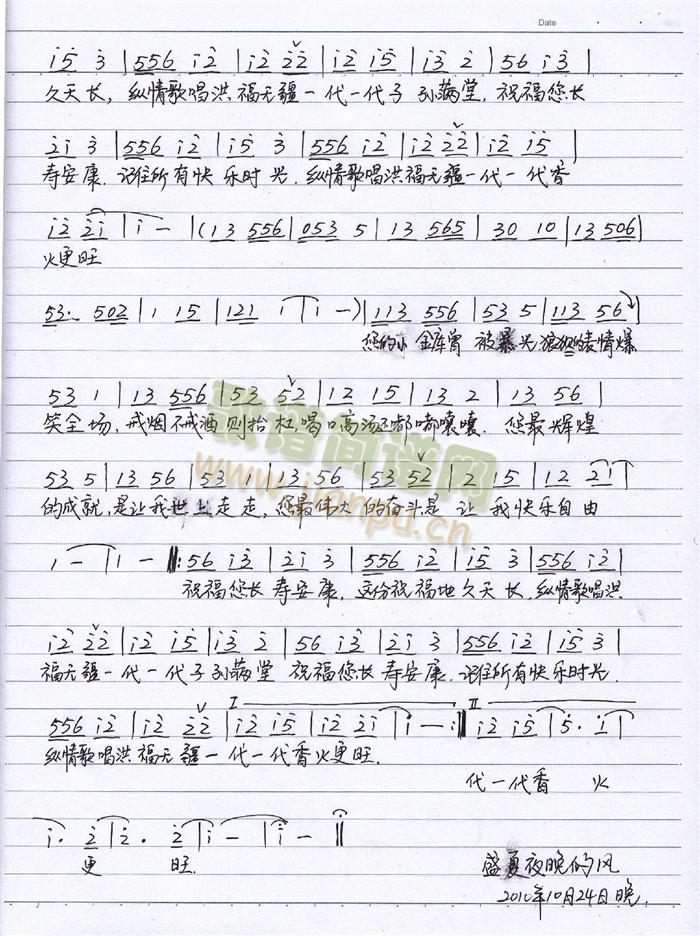 Date
i 5 3 | 556 i2 | i2 22 | i2 i5 | i3 2 | 56 i3 |
久天长，纵情歌唱洪福无疆一代一代子孙满堂，祝福您长
2i 3 | 556 i2 | i5 3 | 556 i2 | i2 22 | i2 i5 |
寿安康，记住所有快乐时光，纵情歌唱洪福无疆一代一代香
i2 2i | i — | (13 556 | 053 5 | 13 565 | 30 10 | 13 506 |
火更旺
53. 502 | 1 15 | 121 i | i —) | 113 556 | 53 5 | 113 56 |
您的小金库曾被曝光 狼狈的表情爆
53 1 | 13 556 | 53 52 | 12 15 | 13 2 | 13 56 |
笑全场，戒烟不戒酒则抬杠唱高还嘟嘟囔囔. 您最辉煌
53 5 | 13 56 | 53 1 | 13 56 | 53 52 | 2 15 | 12 2i |
的成就，是让我世上走走，您最伟大的奋斗是 让 我快乐自由
1 — | 1 — ‖: 56 i3 | 2i 3 | 556 i2 | i5 3 | 556 i2 |
祝福您长寿安康，这份祝福地久天长，纵情歌唱洪
i2 22 | i2 i5 | i3 2 | 56 i3 | 2i 3 | 556 i2 | i5 3 |
福无疆一代一代子孙满堂 祝福您长寿安康，记住所有快乐时光.
I II
556 i2 | i2 22 | i2 i5 | i2 2i | i — :‖ i2 i5 | 5. 1 |
纵情歌唱洪福无疆一代一代香火更旺.
代一代香 火
i. 2 | 2. 2 | i — | i — ‖
更 旺.
盛夏夜晚的风
2010年10月24日晚.
歌谱简谱网
www.jianpu.cn